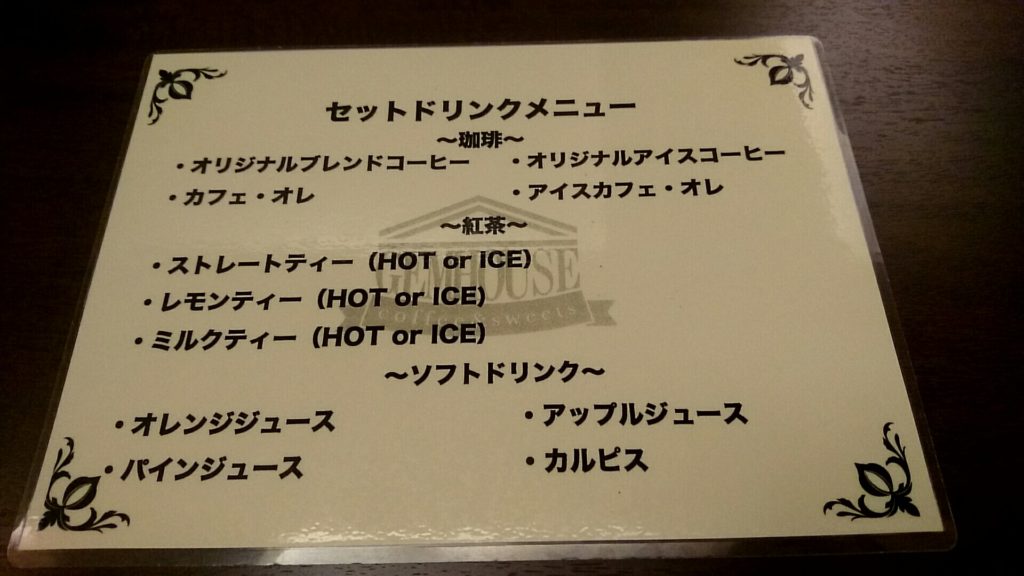 セットドリンクメニュー
～珈琲～
・オリジナルブレンドコーヒー ・オリジナルアイスコーヒー
・カフェ・オレ ・アイスカフェ・オレ
～紅茶～
・ストレートティー（HOT or ICE）
・レモンティー（HOT or ICE）
・ミルクティー（HOT or ICE）
GEMHOUSE
coffee&sweets
～ソフトドリンク～
・オレンジジュース ・アップルジュース
・パインジュース ・カルピス